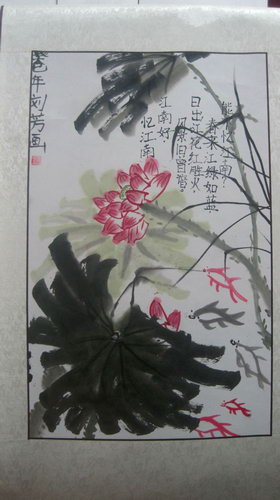 忆江南
江南好,
风景旧曾谙。
日出江花红胜火,
春来江绿如蓝
忆江南?
癸巳年刘芳画